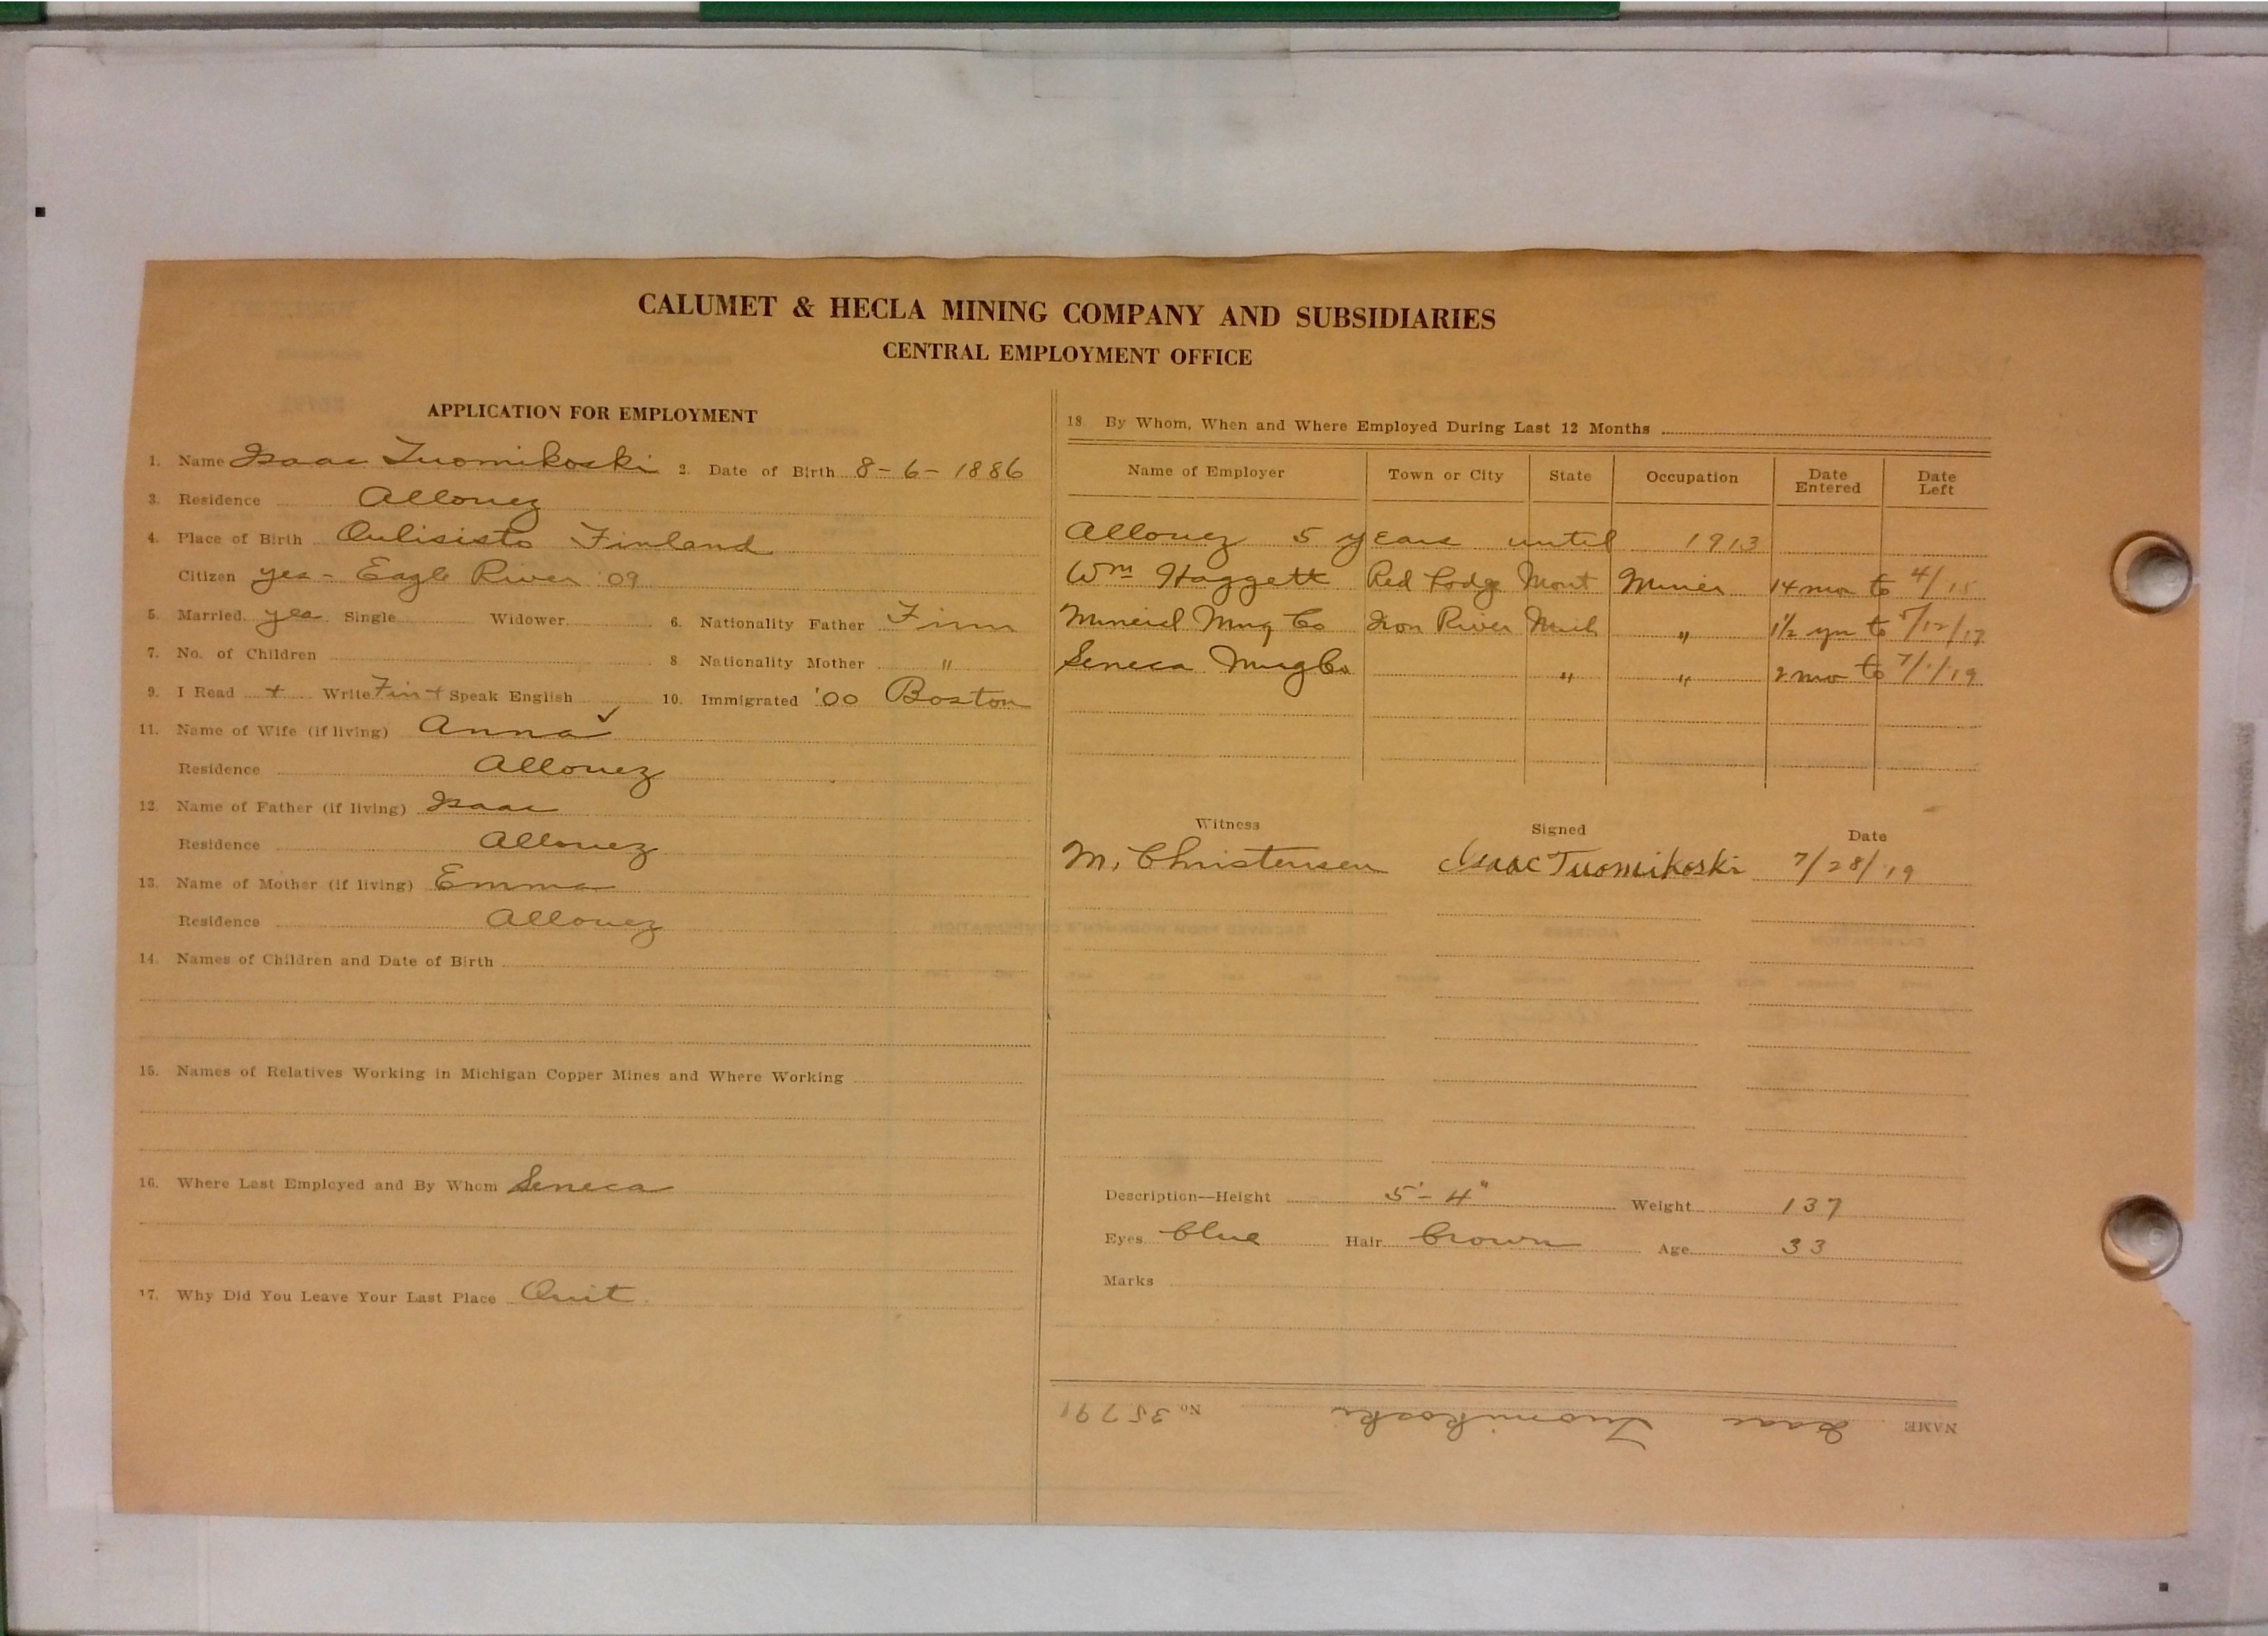 CALUMET & HECLA MINING COMPANY AND SUBSIDIARIES
CENTRAL EMPLOYMENT OFFICE
APPLICATION FOR EMPLOYMENT
1. Name Isaac Tuomikoski 2. Date of Birth 8-6-1886
3. Residence Allouez
4. Place of Birth Oulisisto Finland
Citizen yes - Eagle River '09
5. Married yes Single Widower 6. Nationality Father Finn
7. No. of Children 8 Nationality Mother "
9. I Read + Write Fin + Speak English 10. Immigrated '00 Boston
11. Name of Wife (if living) Anna ✓
Residence Allouez
12. Name of Father (if living) Isaac
Residence Allouez
13. Name of Mother (if living) Emma
Residence Allouez
14. Names of Children and Date of Birth
15. Names of Relatives Working in Michigan Copper Mines and Where Working
16. Where Last Employed and By Whom Seneca
17. Why Did You Leave Your Last Place Quit.
18. By Whom, When and Where Employed During Last 12 Months
Name of Employer Town or City State Occupation Date Entered Date Left
Allouez 5 years until 1913
Wm Haggett Red Lodge Mont Miner 14 mo to 4/15
Mineral Mng Co Iron River Mich " 1½ yrs to /12/17
Seneca Mng Co " " 2 mo to 7/1/19
Witness Signed Date
M. Christensen Isaac Tuomikoski 7/28/19
Description—Height 5'-4" Weight 137
Eyes blue Hair brown Age 33
Marks
NAME Isaac Tuomikoski No. 35791